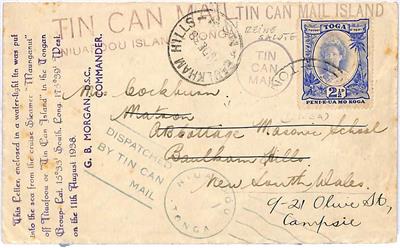 TIN CAN MAIL
TIN CAN MAIL ISLAND
NIUAFOOU ISLAND TONGA
BAULKHAM HILLS
TIN
CAN
MAIL
TOGA
2½D
PENI-E-UA MO KOGA
This Letter, enclosed in a water-tight tin was put
into the sea from the cruise Steamer "Maunganui"
off Niuafoou or "Tin Can Island" in the Tongan
Group—Lat. 15°33' South, Long. 17°930' West,
on the 11th August 1938.
G. B. MORGAN, D.S.C.,
COMMANDER.
Cockburn
Matson
Masonic School
Baulkham Hills
New South Wales.
9-21 Olive St,
Campsie
DISPATCHED
BY TIN CAN
MAIL
NIUAFOOU
TONGA